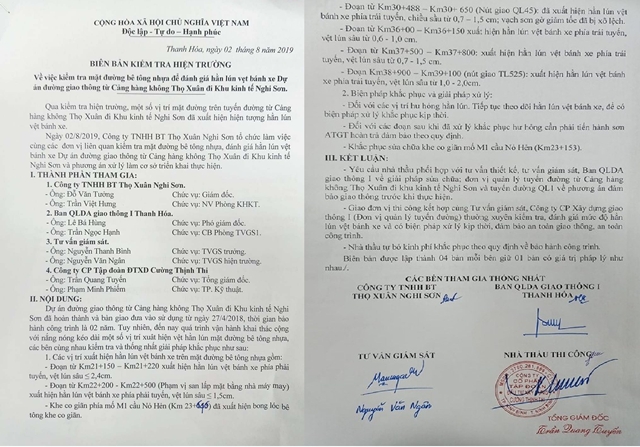 CỘNG HÒA XÃ HỘI CHỦ NGHĨA VIỆT NAM
Độc lập - Tự do – Hạnh phúc
Thanh Hóa, ngày 02 tháng 8 năm 2019
BIÊN BẢN KIỂM TRA HIỆN TRƯỜNG
Về việc kiểm tra mặt đường bê tông nhựa để đánh giá hằn lún vệt bánh xe Dự
án đường giao thông từ Cảng hàng không Thọ Xuân đi Khu kinh tế Nghi Sơn.
Qua kiểm tra hiện trường, một số vị trí mặt đường trên tuyến đường từ Cảng
hàng không Thọ Xuân đi Khu kinh tế Nghi Sơn đã xuất hiện hiện tượng hằn lún
vệt bánh xe.
Ngày 02/8/2019, Công ty TNHH BT Thọ Xuân Nghi Sơn tổ chức làm việc
cùng các đơn vị liên quan kiểm tra mặt đường bê tông nhựa, đánh giá hằn lún vệt
bánh xe Dự án đường giao thông từ Cảng hàng không Thọ Xuân đi Khu kinh tế
Nghi Sơn và phương án xử lý làm cơ sở triển khai thực hiện.
I. THÀNH PHẦN THAM GIA:
1. Công ty TNHH BT Thọ Xuân Nghi Sơn.
- Ông: Đỗ Văn Tường Chức vụ: Giám đốc.
- Ông: Trần Việt Hưng Chức vụ: NV Phòng KHKT.
2. Ban QLDA giao thông I Thanh Hóa.
- Ông: Lê Bá Hùng Chức vụ: Phó giám đốc.
- Ông: Trần Ngọc Hạnh Chức vụ: CB Phòng TVGS1.
3. Tư vấn giám sát.
- Ông: Nguyễn Thanh Bình Chức vụ: TVGS trưởng.
- Ông: Nguyễn Văn Ngân Chức vụ: TVGS hiện trường.
4. Công ty CP Tập đoàn ĐTXD Cường Thịnh Thi
- Ông: Trần Quang Tuyển Chức vụ: Tổng giám đốc.
- Ông: Phạm Minh Phiếm Chức vụ: TP. Kỹ thuật.
II. NỘI DUNG:
Dự án đường giao thông từ Cảng hàng không Thọ Xuân đi Khu kinh tế Nghi
Sơn đã hoàn thành và bàn giao đưa vào sử dụng từ ngày 27/4/2018, thời gian bảo
hành công trình là 02 năm. Tuy nhiên, đến nay quá trình vận hành khai thác cộng
với nắng nóng kéo dài một số vị trí xuất hiện hằn lún vệt mặt đường bê tông nhựa,
các bên cùng nhau kiểm tra và thống nhất giải pháp khắc phục như sau:
1. Các vị trí xuất hiện hằn lún vệt bánh xe trên mặt đường bê tông nhựa gồm:
- Đoạn từ Km21+150 – Km21+220 xuất hiện hằn lún vệt bánh xe phía phải
tuyến, vệt lún sâu ≤ 2,4cm.
- Đoạn từ Km22+200 - Km22+500 (Phạm vi san lấp mặt bằng nhà máy may)
xuất hiện hằn lún vệt bánh xe phía phải tuyến, vệt lún sâu ≤ 1,5cm.
- Khe co giãn phía mố M1 cầu Nỏ Hẻn (Km 23+ đã xuất hiện bong lóc bê
tông khe co giãn.
- Đoạn từ Km30+488 – Km30+ 650 (Nút giao QL45): đã xuất hiện hằn lún vệt
bánh xe phía trái tuyến, chiều sâu từ 0,7 – 1,5 cm; vạch sơn gờ giảm tốc đã bị xô lệch.
- Đoạn từ Km36+00 – Km36+150 xuất hiện hằn lún vệt bánh xe phía trái tuyến,
vệt lún sâu từ 0,6 - 1,0 cm.
- Đoạn từ Km37+500 – Km37+800: xuất hiện hằn lún vệt bánh xe phía trái
tuyến, vệt lún sâu từ 0,7 - 1,5 cm.
- Đoạn từ Km38+900 – Km39+100 (nút giao TL525): xuất hiện hằn lún vệt
bánh xe phía trái tuyến, vệt lún sâu từ 1,0 - 2,0cm.
2. Biện pháp khắc phục và giải pháp xử lý:
- Đối với các vị trí hư hỏng hằn lún. Tiếp tục theo dõi hằn lún vệt bánh xe, để có
biện pháp xử lý khắc phục kịp thời.
- Đối với các đoạn sau khi đã xử lý khắc phục hư hỏng cần phải tiến hành sơn
ATGT hoàn trả đảm bảo theo quy định.
- Khắc phục sửa chữa khe co giãn mố M1 cầu Nỏ Hẻn (Km23+153).
III. KẾT LUẬN:
- Yêu cầu nhà thầu phối hợp với tư vấn thiết kế, tư vấn giám sát, Ban QLDA
giao thông I về giải pháp sửa chữa; đơn vị quản lý tuyến đường từ Cảng hàng
không Thọ Xuân đi khu kinh tế Nghi Sơn và tuyến đường QL1 về phương án đảm bảo
giao thông trước khi thực hiện.
- Giao đơn vị thi công kết hợp cùng Tư vấn giám sát, Công ty CP Xây dựng giao
thông I (Đơn vị quản lý tuyến đường) thường xuyên kiểm tra, đánh giá mức độ hằn
lún vệt bánh xe và có biện pháp xử lý kịp thời, đảm bảo an toàn giao thông, an toàn
công trình.
- Nhà thầu tự bỏ kinh phí khắc phục theo quy định về bảo hành công trình.
Biên bản được lập thành 04 bản mỗi bên giữ 01 bản có giá trị pháp lý như
nhau./.
CÁC BÊN THAM GIA THỐNG NHẤT
CÔNG TY TNHH BT BAN QLDA GIAO THÔNG I
THỌ XUÂN NGHI SƠN THANH HÓA
TƯ VẤN GIÁM SÁT NHÀ THẦU THI CÔNG
Nguyễn Văn Ngân
TỔNG GIÁM ĐỐC
Trần Quang Tuyển